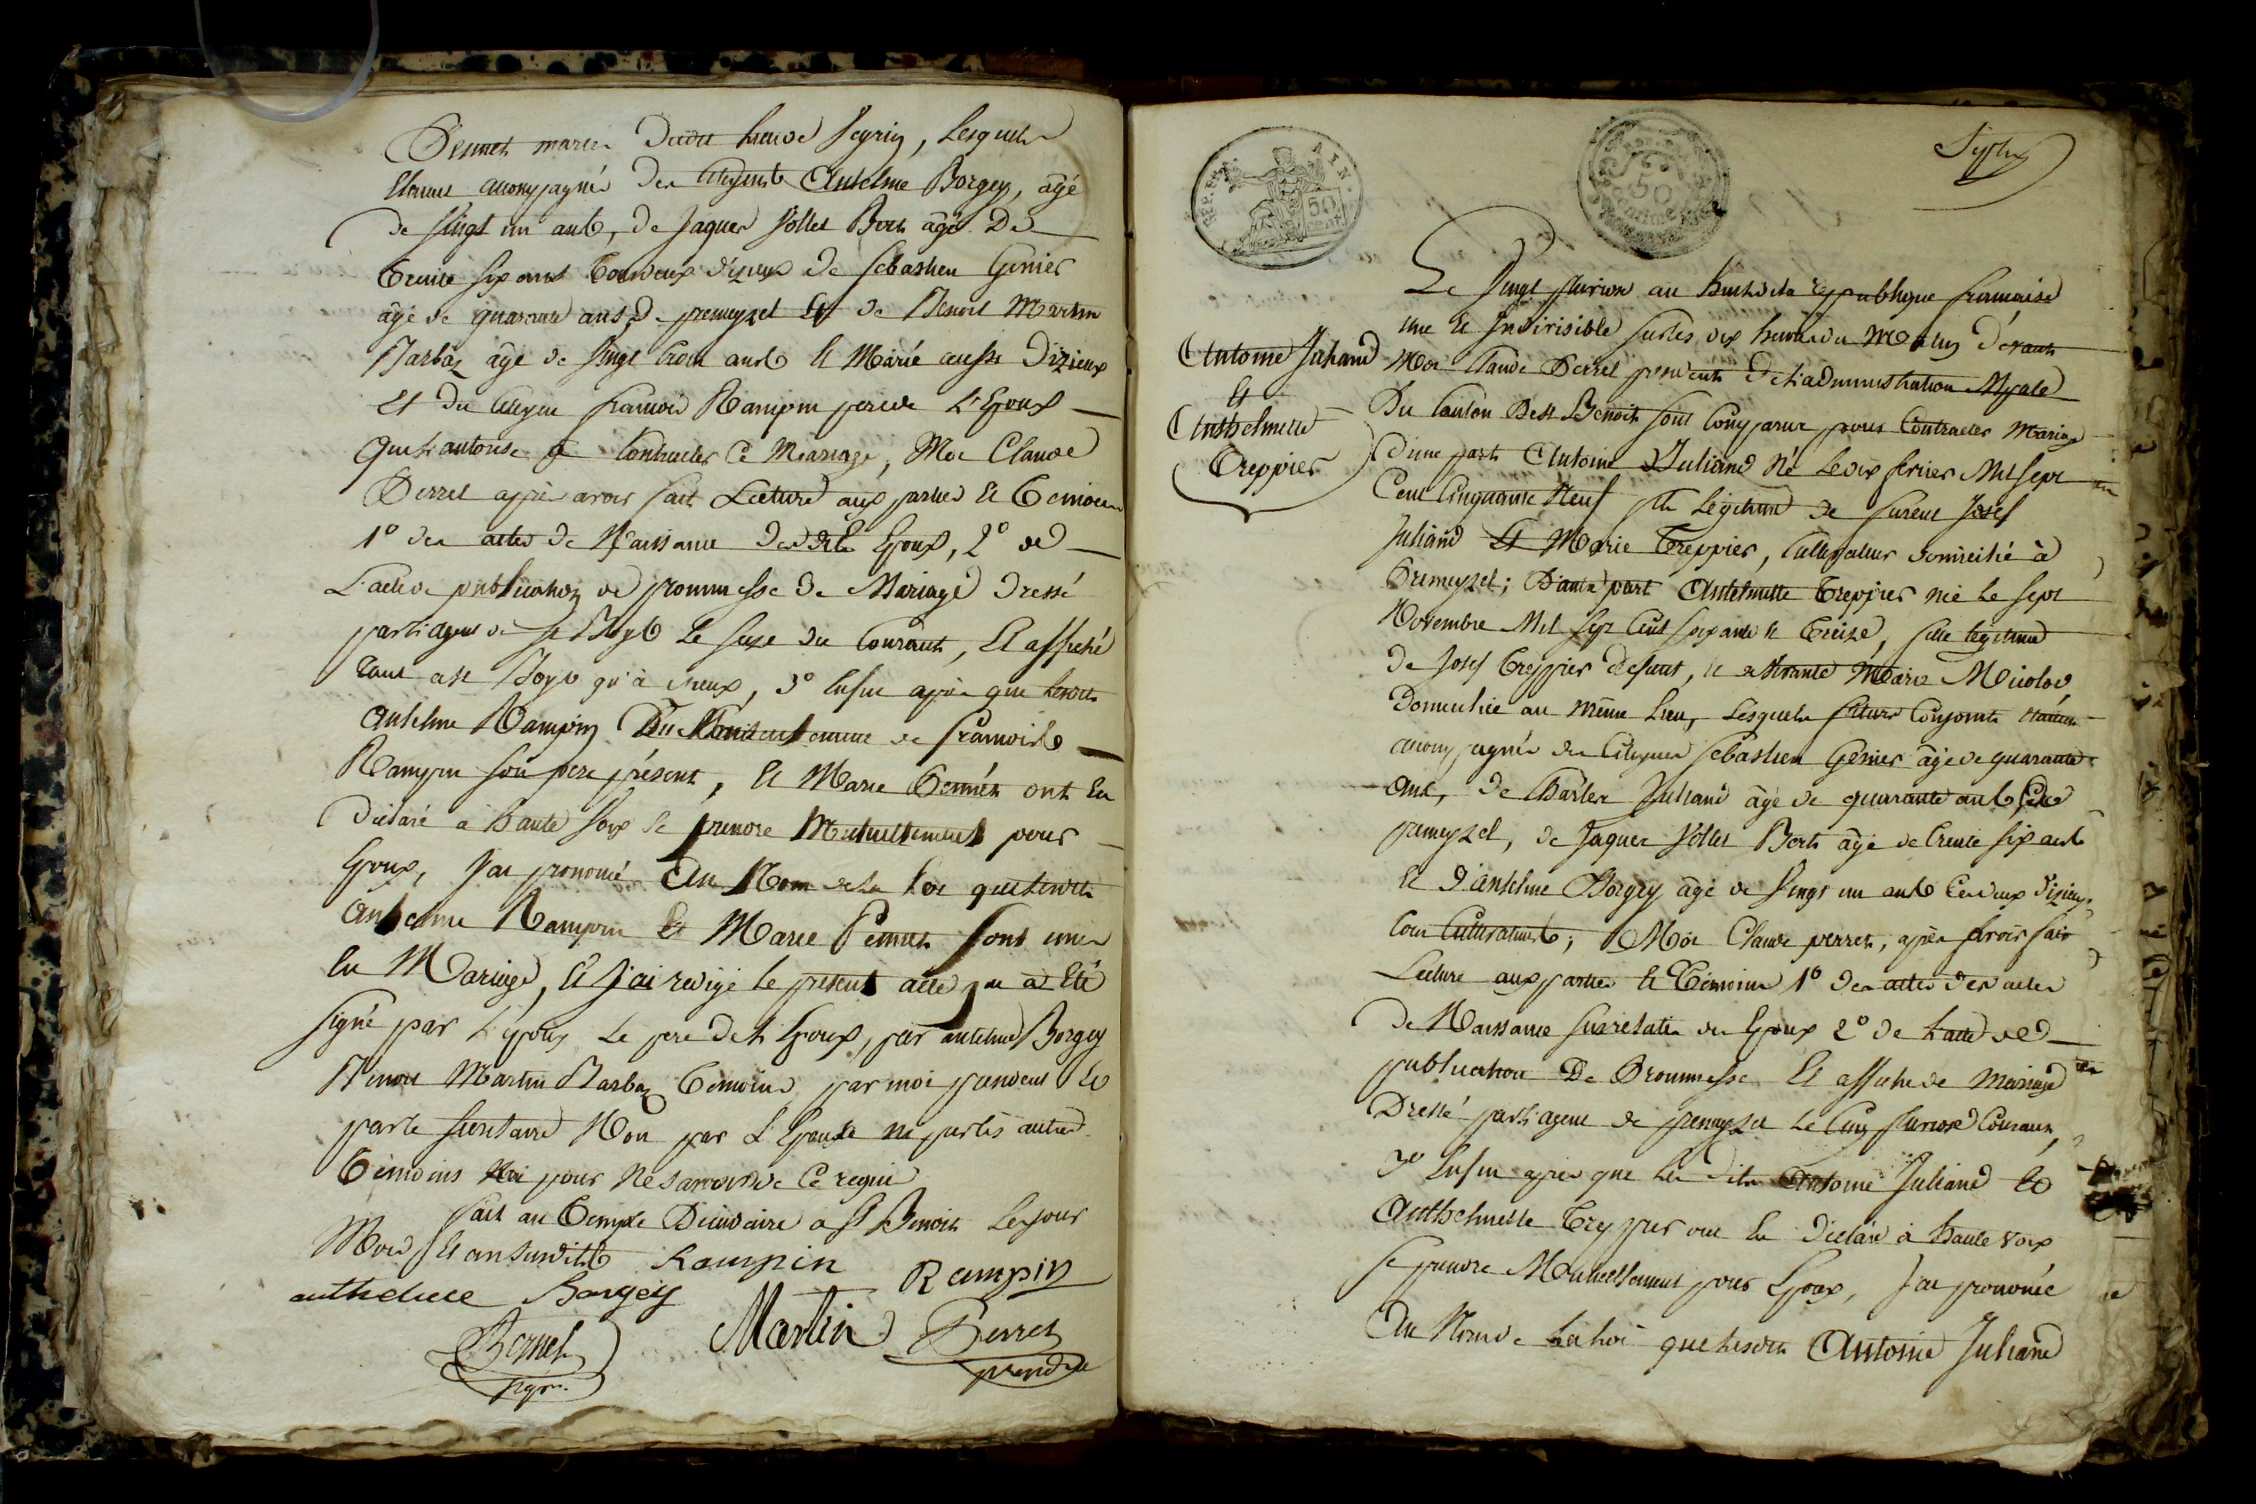 Pennet marie du dit lieu de Peyrin, Lesquels
Etaient accompagnés des Citoyens Antelme Borgey, âgé
de Vingt un ans, de Jaques Jollet Berth âgé De
Trente six ans tous deux d'izieux de Sebastien Genier
âgé de quarante ans de premeyzel Et de Benoit Martin
Barbaz âgé de Vingt trois ans Et Marié aussi D'izieux
Et du Citoyen francois Rampin pere de L'Epoux
qui L'autorise a Contracter Ce Mariage, Moi Claude
Perret après avoir fait Lecture aux parties Et Temoins
1° des actes de Naissance des dits Epoux, 2° de
L'acte de publication de prommesse de Mariage Dressé
par L'agent de St Boys le seize du Courant, Et affiché
tant a St Boys qu'à izieux, 3° Enfin après que Lesdits
Antelme Rampin Du Consentement de francois
Rampin son pere présent, Et Marie Pennet ont Eu
Déclaré à haute Voix se prendre Mutuellement pour
Epoux, J'ai prononcé Au Nom de la Loi que Lesdits
Antelme Rampin Et Marie Pennet Sont unis
En Mariage, Et J'ai redigé le present acte qui a Eté
signé par L'époux Le pere de L'Epoux, par antelme Borgey
Benoit Martin Barbaz Temoins par moi president Et
par le secretaire Non par L'Epouse ni par les autres
Temoins pour Ne savoir de Ce requis
fait au Temple Decadaire à St Benoit Les jour
Mois Et an Susdits Rampin Rampin
anthelme Borgey Martin Perret
Bernet president
50
REP. FRA. AIN.
50 CENT.
50
centimes
Le Vingt fluviose an huit de la république francaise
une Et Indivisible sur les dix heures du Matin Devant
Antoine Juliand
Et
Anthelmette
Treppier
Moi Claude Perret president De L'administration Mpale
Du Canton De St Benoit sont Comparus pour Contracter Mariage
D'une part Antoine Juliand Né Le dix fevrier Mil Sept
Cent Cinquante Neuf fils Légitime de furent Josef
Juliand Et Marie Treppier, Cultivateur domicilié à
Premeyzel; D'autre part Antelmette Treppier née Le sept
Novembre Mil Sept Cent soixante Et treize, fille légitime
de Josef Treppier défunt, Et de Vivante Marie Micoloz
Domiciliée au même Lieu, Lesquels futurs Conjoints étaient
accompagnés des Citoyens Sebastien Genier âgé de quarante
ans, de Charles Juliand âgé de quarante ans, de
premeyzel, de Jaques Jollet Berth âgé de trente six ans
Et D'anthelme Borgey âgé de Vingt un ans Ces deux d'izieux,
tous Cultivateurs; Moi Claude perret, après avoir fait
Lecture aux parties Et Témoins 1° des actes des actes
de Naissance susrelatés des Epoux 2° de L'acte de
publication De Prommesse Et affiche de Mariage
Dressé par L'agent de premeyzel Le Cinq pluviose Courant,
3° Enfin après que Les dits Antoine Juliand Et
Anthelmette Treppier ont Eu Déclaré à haute Voix
se prendre Mutuellement pour Epoux, J'ai prononcé
Au Nom de la Loi que Lesdits Antoine Juliand